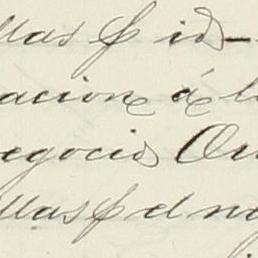 llas p id—
acion á l
egocio On
llas p el ne